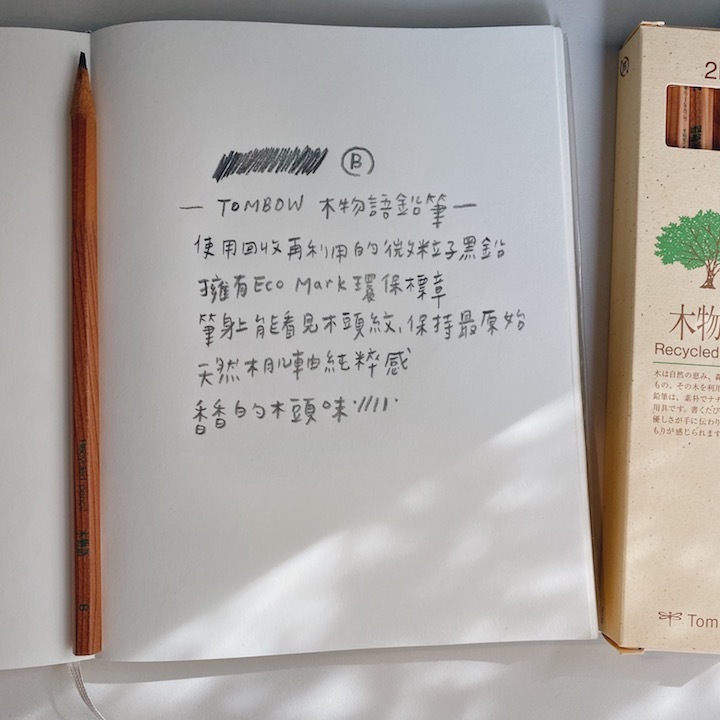 B
— TOMBOW 木物語鉛筆 —
使用回收再利用的微粒子黑鉛
擁有Eco Mark環保標章
筆身上能看見木頭紋、保持最原始
天然木肌軸純粹感
香香的木頭味
Recycled pencil 木物語 B
B
2
木物
Recycled
木は自然の恵み、森
もの。その木を利用
鉛筆は、素朴でナチ
用具です。書くたび
優しさが手に伝わり
もりが感じられます
Tom